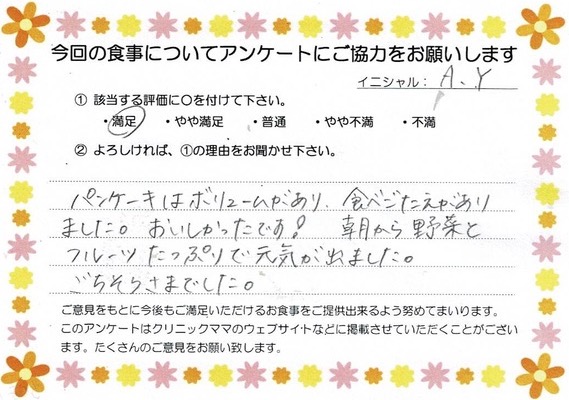 今回の食事についてアンケートにご協力をお願いします
イニシャル： A.Y
① 該当する評価に○を付けて下さい。
・満足 ・やや満足 ・普通 ・やや不満 ・不満
② よろしければ、①の理由をお聞かせ下さい。
パンケーキはボリュームがあり、食べごたえがあり
ました。おいしかったです! 朝から野菜と
フルーツたっぷりで元気が出ました。
ごちそうさまでした。
ご意見をもとに今後もご満足いただけるお食事をご提供出来るよう努めてまいります。
このアンケートはクリニックママのウェブサイトなどに掲載させていただくことがござい
ます。たくさんのご意見をお願い致します。